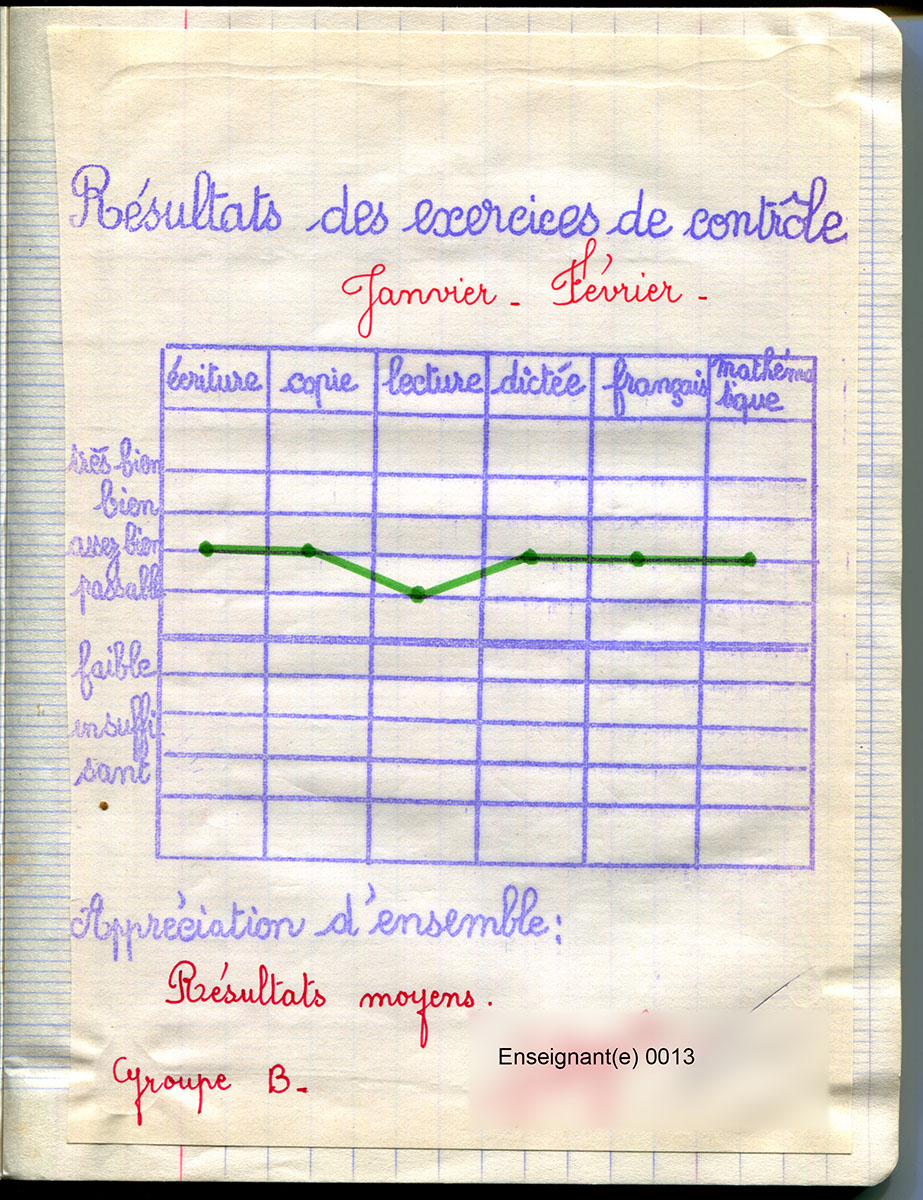 Résultats des exercices de contrôle
Janvier - Février -
écriture copie lecture dictée français mathéma
tique
très bien
bien
assez bien
passable
faible
insuffi
sant
Appréciation d'ensemble:
Résultats moyens.
Enseignant(e) 0013
Groupe B-